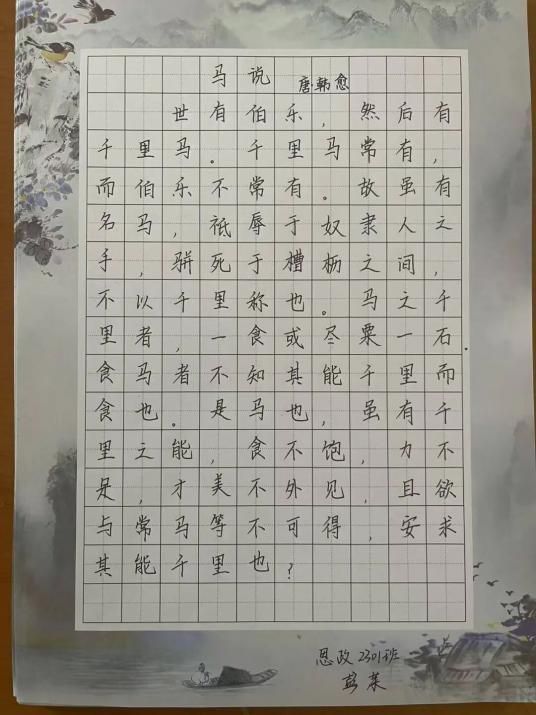 马说 唐韩愈
世有伯乐，然后有
千里马。千里马常有，
而伯乐不常有。故虽有
名马，祇辱于奴隶人之
手，骈死于槽枥之间，
不以千里称也。马之千
里者，一食或尽粟一石。
食马者不知其能千里而
食也。是马也，虽有千
里之能，食不饱，力不
足，才美不外见，且欲
与常马等不可得，安求
其能千里也？
思政2301班